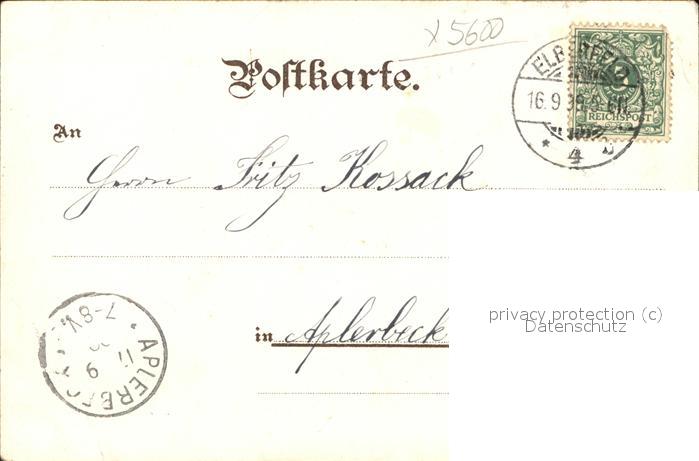 x 5600
Postkarte.
ELBERFELD
16.9.99.8-9N.
* 4 c
REICHSPOST
An
Herrn Fritz Kossack
privacy protection (c)
Datenschutz
in Aplerbeck
APLERBECK
17 9
7-8V.